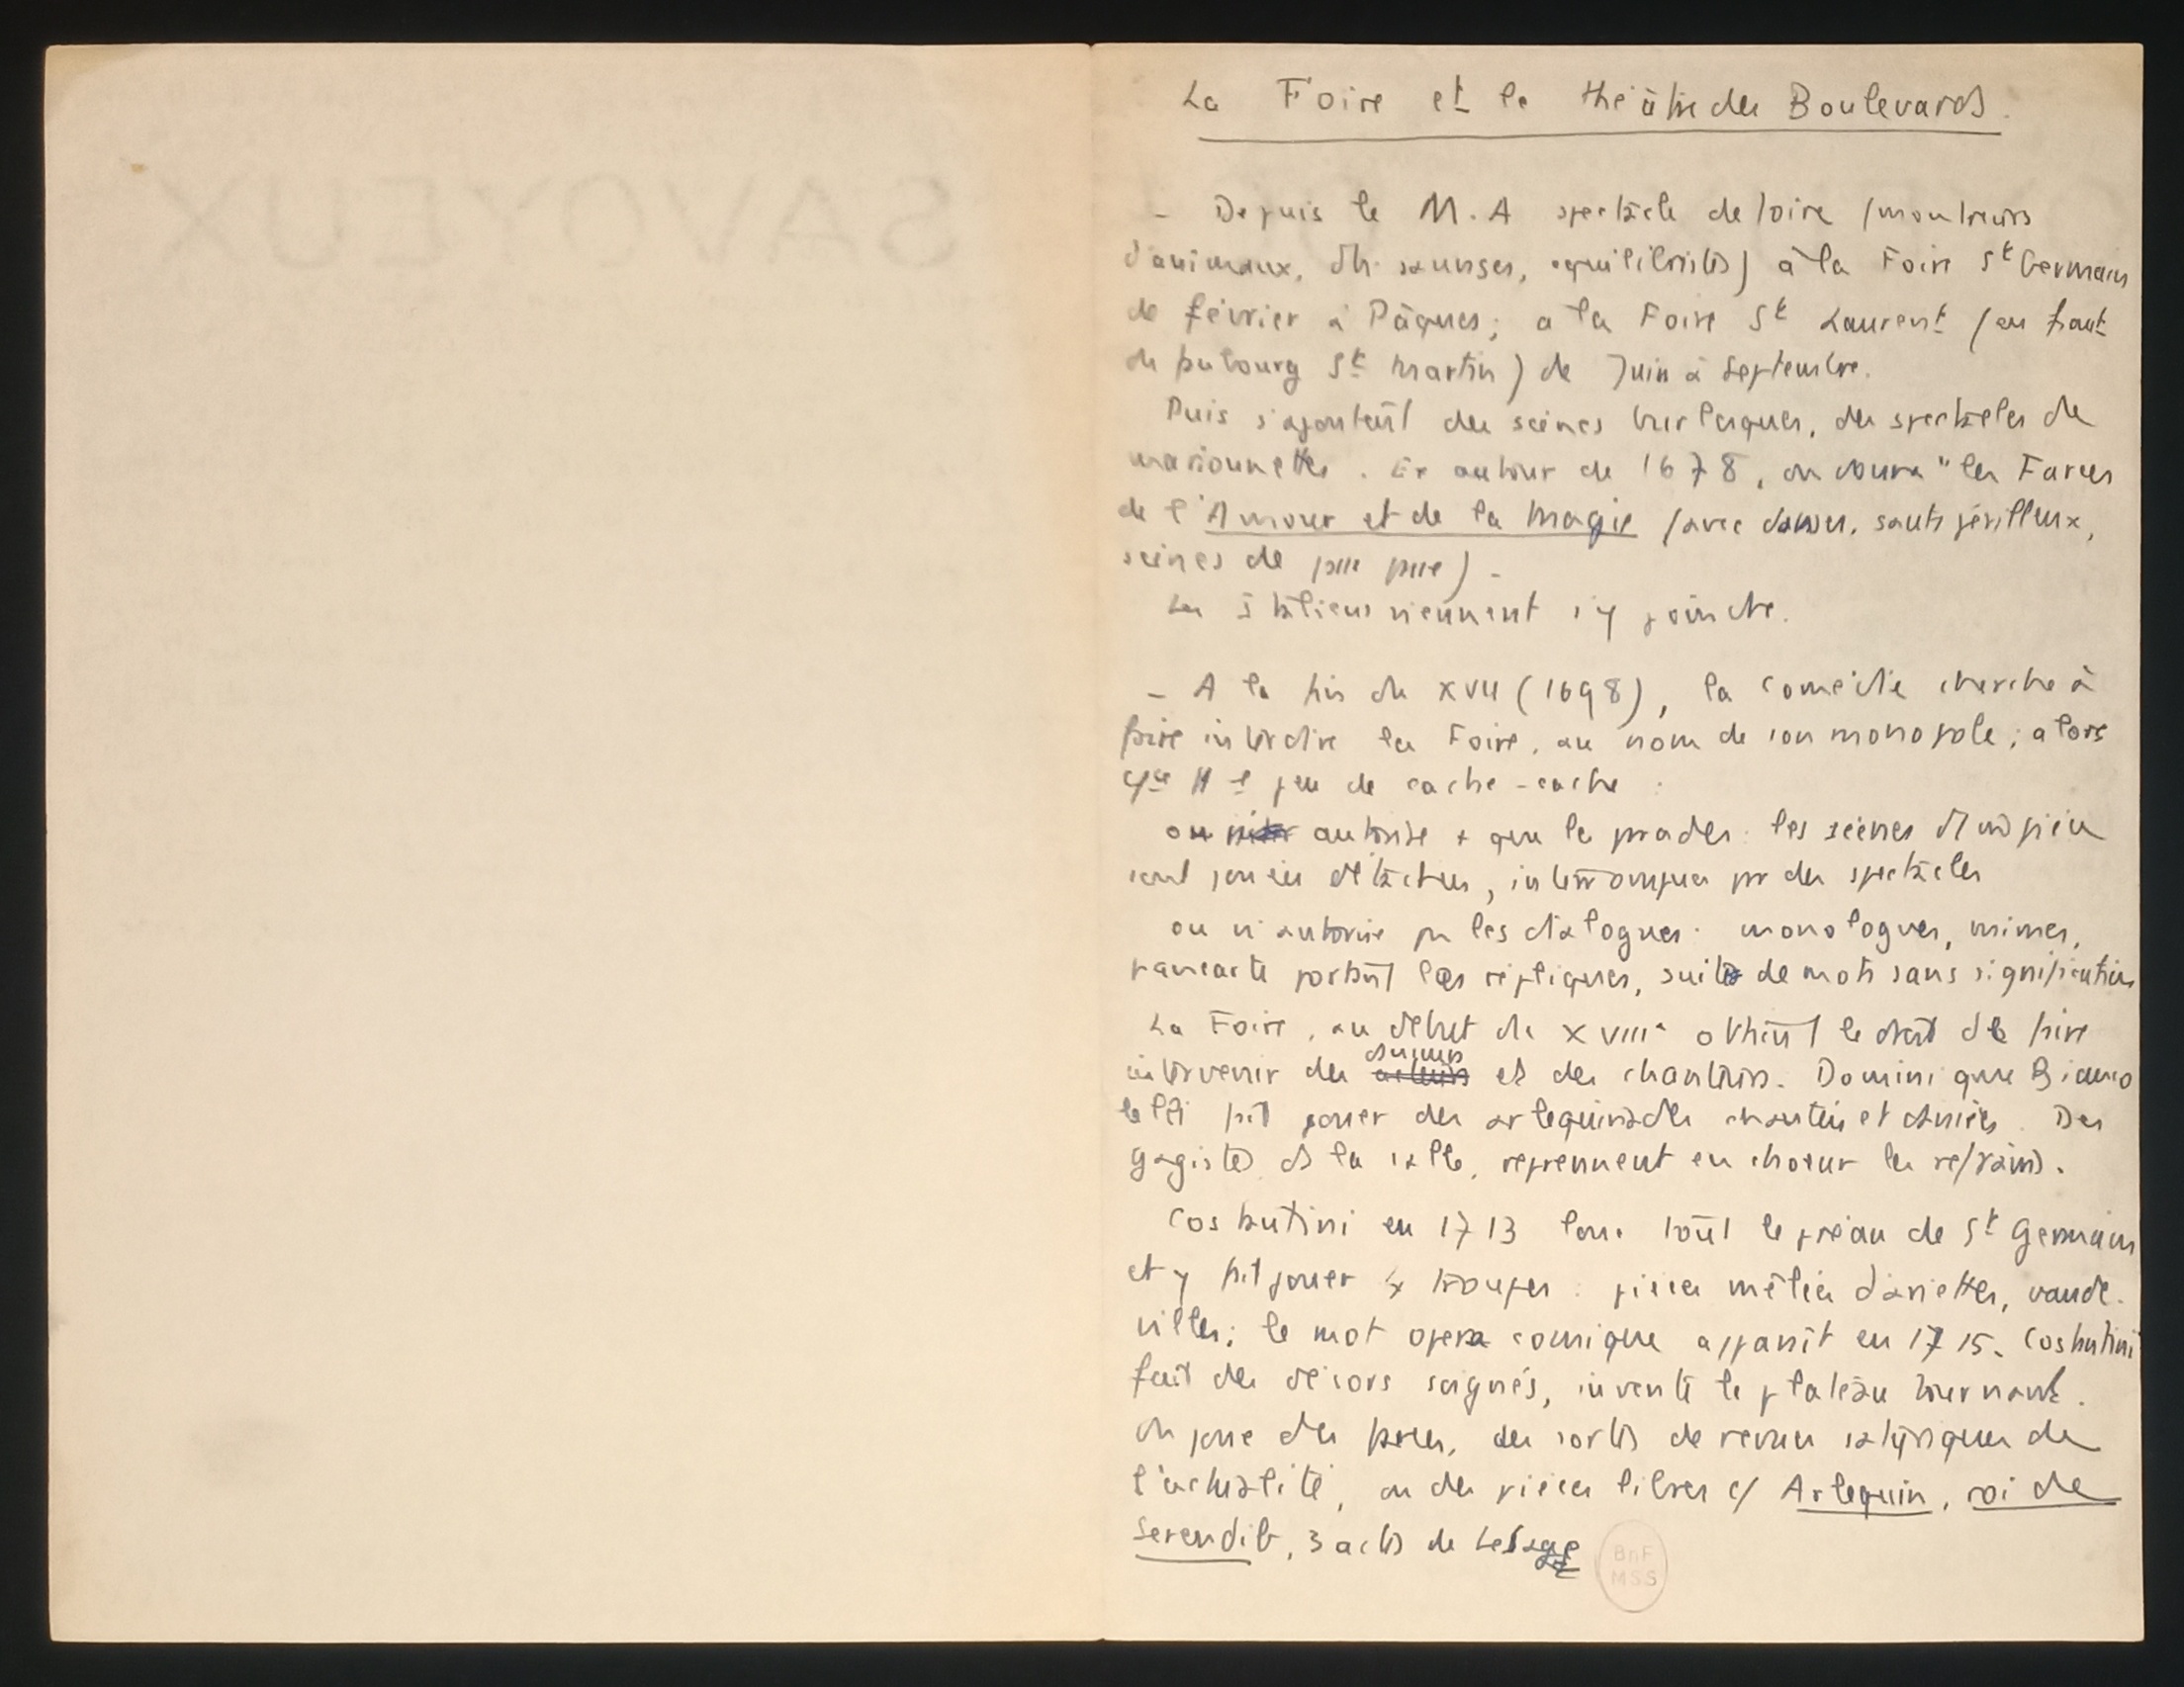 La Foire et le théâtre des Boulevards.
- Depuis le M.A spectacle de foire (montreurs
d'animaux, de singes, équilibristes) à la Foire St Germain
de février à Pâques; à la Foire St Laurent (au haut
du faubourg St Martin) de Juin à Septembre.
Puis s'ajoutent des scènes burlesques, des spectacles de
marionnettes. Et autour de 1678, on donna "les Forces
de l'Amour et de la Magie (avec danses, sauts périlleux,
scènes de pure)-
Les Italiens viennent s'y joindre.
- A la fin du XVII (1698), la Comédie cherche à
faire interdire la Foire, au nom de son monopole; alors
jeu de cache-cache :
on autorise + que les parades: les scènes d'une pièce
sont jouées détachées, interrompues par des spectacles
on n'autorise pas les dialogues: monologues, mimes,
pancarte portant les répliques, suites de mots sans signification
La Foire, au début du XVIIIe obtient le droit de faire
intervenir des danseurs et des chanteurs. Dominique Bianco
lelli fait jouer des arlequinades chantées et dansées. Des
gagistes, ds la salle, reprennent en choeur les refrains.
Costantini en 1713 loue tout le préau de St Germain
et y fait jouer 4 troupes : pièces mêlées d'ariettes, vaude-
villes; le mot opera comique apparaît en 1715. Costantini
fait des décors soignés, invente le plateau tournant.
On joue des farces, des sortes de revues satiriques de
l'actualité, ou des pièces libres c/ Arlequin, roi de
Serendib, 3 actes de Lesage
BnF
MSS
SAVOYEUX